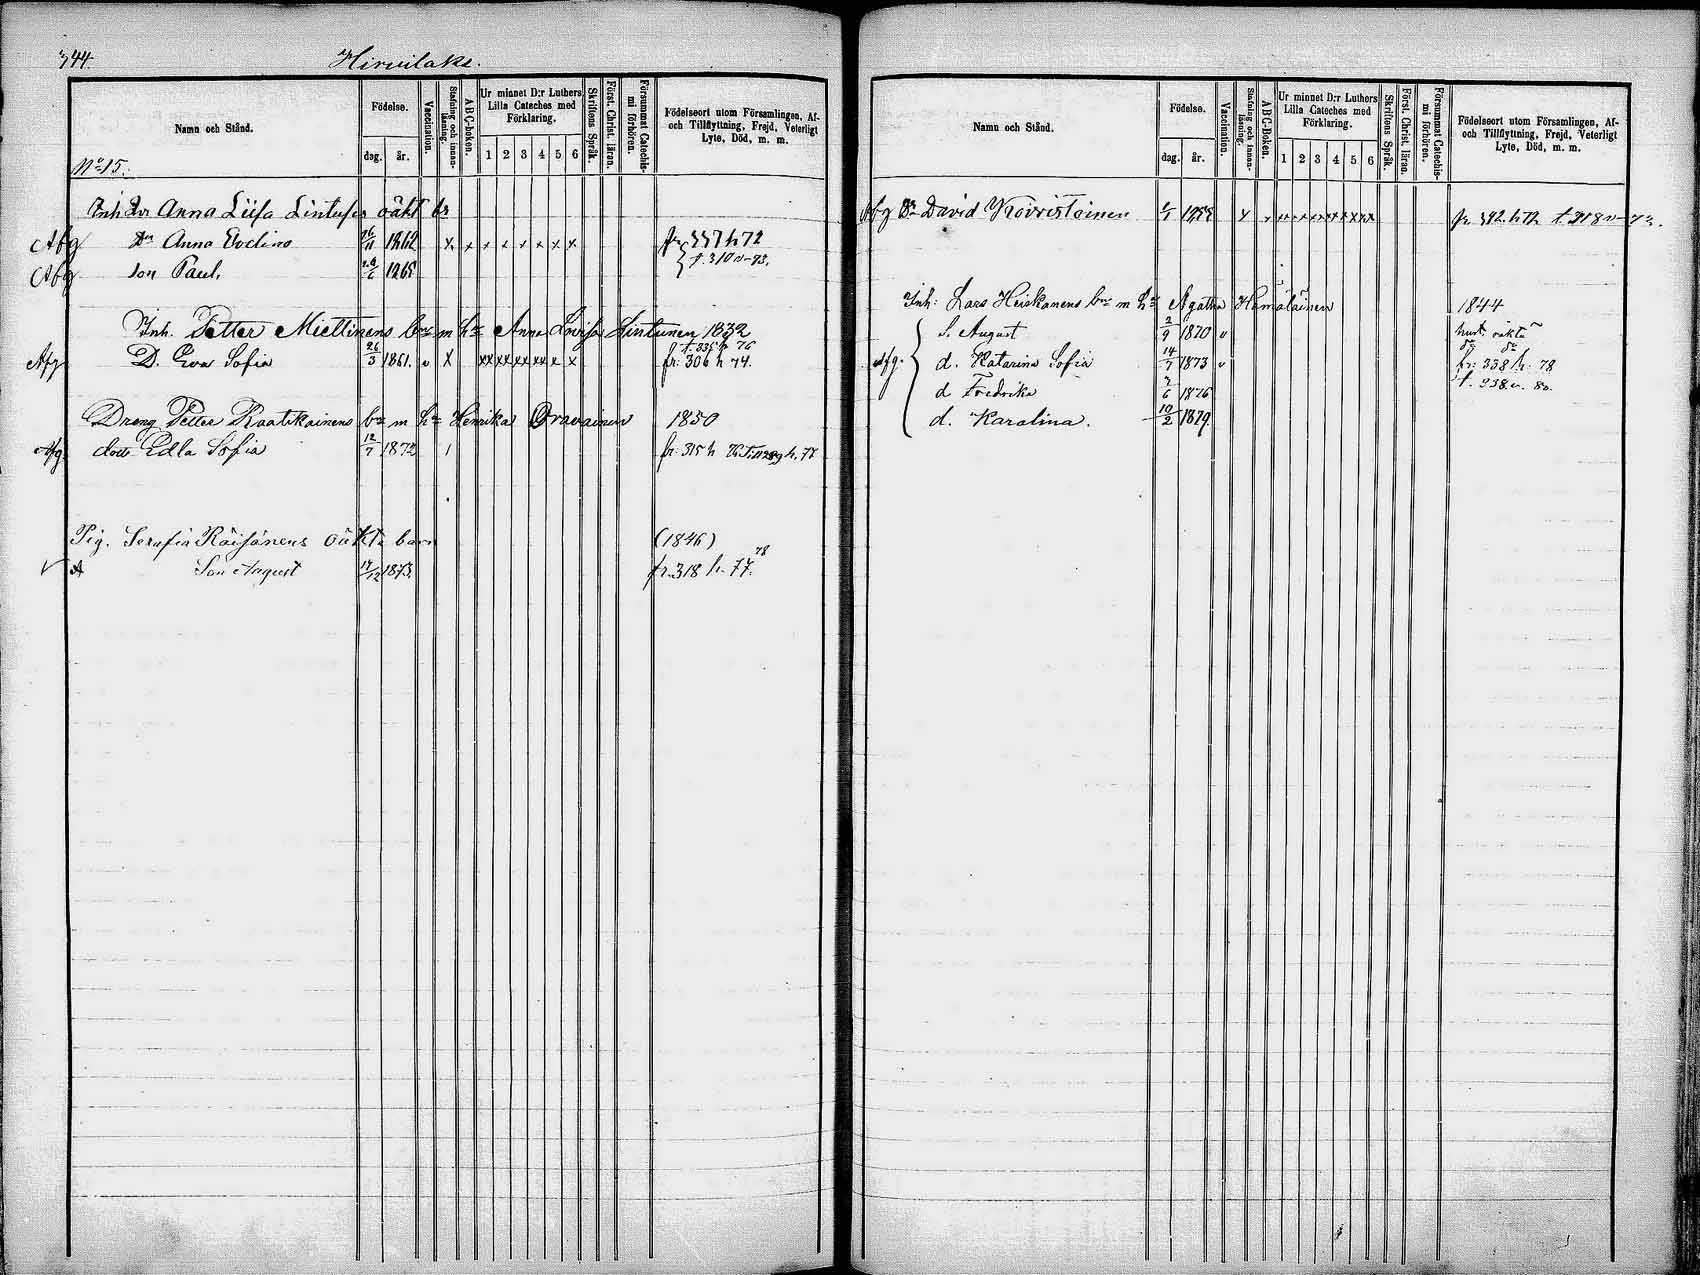 344.
Hirvilaks.
Namn och Stånd.
Födelse.
dag. år.
Vaccination.
Stafning och innanläsning.
ABC-boken.
Ur minnet D:r Luthers Lilla Cateches med Förklaring.
1 2 3 4 5 6
Skriftens Språk.
Först. Christ. läran.
Försummat Catechismi förhören.
Födelseort utom Församlingen, Af- och Tillflyttning, Frejd, Veterligt Lyte, Död, m. m.
No 15.
Inh. Anna Liisa oäkt br
Afg Anna 26/11 1862 x x x x x x x x fr 337 h 72
Afg son Paul, 1865 t. 310 v - 73.
Inh. Petter Miettinens brn m hu Anna Lovisa Lintunen 1832
t. 335 h 76
Afg D. Eva Sofia 26/3 1861. v x xx xx xx xx x x fr: 306 h 74.
Dreng Petter Raatikainens brn m hu Henrika Oravainen 1850
Afg dottr Edla Sofia 12/7 1872 1 fr: 315 h h. 77
Pig. Serafia Räisänens oäkta barn (1846)
Son August 17/12 1873. fr. 318 h. 77. 78
Namn och Stånd.
Födelse.
dag. år.
Vaccination.
Stafning och innanläsning.
ABC-Boken.
Ur minnet D:r Luthers Lilla Cateches med Förklaring.
1 2 3 4 5 6
Skriftens Språk.
Först. Christ. läran.
Försummat Catechismi förhören.
Födelseort utom Församlingen, Af- och Tillflyttning, Frejd, Veterligt Lyte, Död, m. m.
Afg David Koivistoinen
Inh: Lars Heiskanens brn m hu Agatha Hämäläinen 1844
S. August 2/9 1870 v
Afg. d. Katarina Sofia 14/7 1873 v fr: 338 h. 78
d Fredrika 7/6 1876 t. 238 v. 80.
d. Karolina. 10/2 1879.